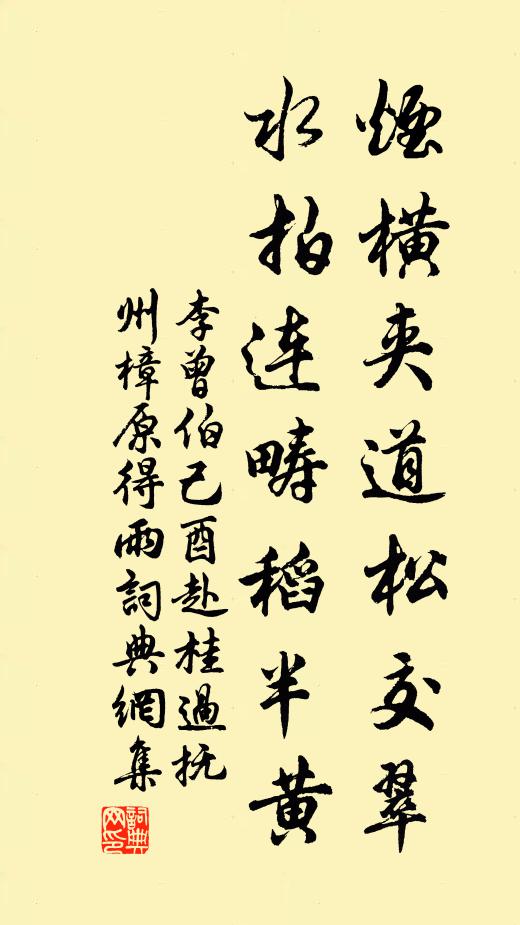 煙橫夾道松交翠
水拍連疇稻半黃
李曾伯己酉赴桂過抚
州樟原得雨詞典網集
詞典
网印